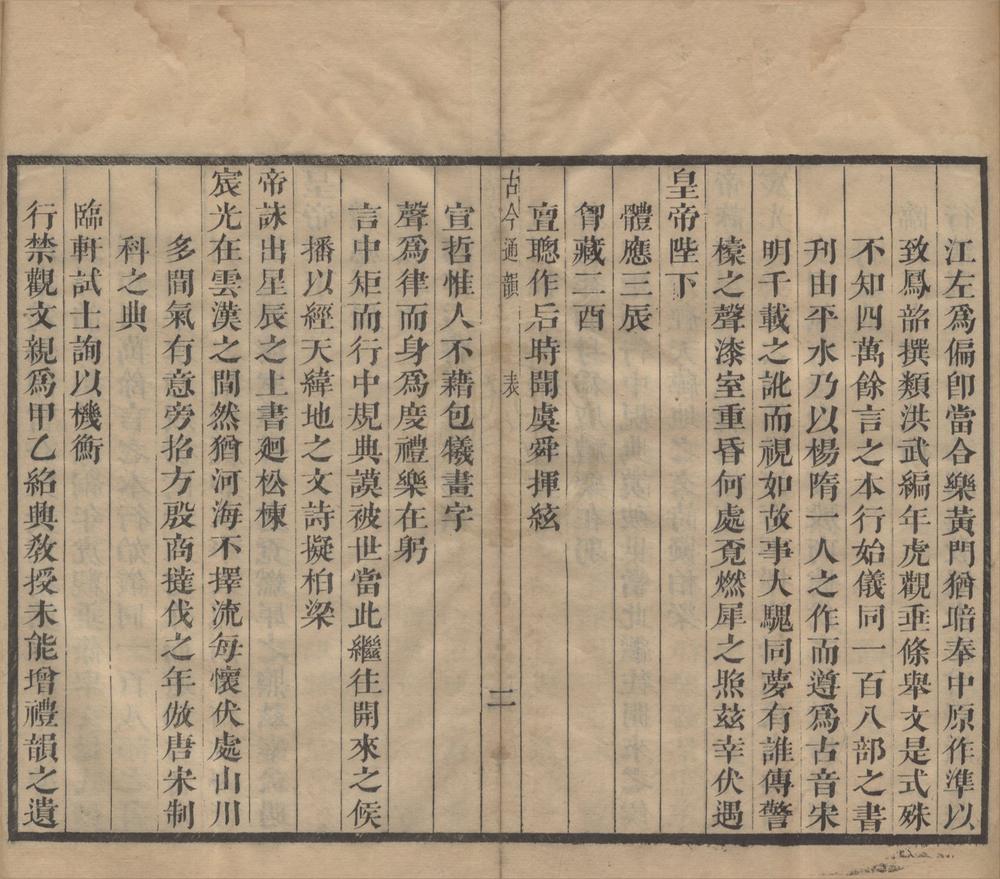 江左爲偏卽當合樂黃門猶暗奉中原作準以
致鳳韶撰類洪武編年虎觀垂條舉文是式殊
不知四萬餘言之本行始儀同一百八部之書
刋由平水乃以楊隋一人之作而遵爲古音宋
明千載之訛而視如故事大騩同夢有誰傳警
㯓之聲漆室重昏何處覔燃犀之炤兹幸伏遇
皇帝陛下
體應三辰
智藏二酉
亶聰作后時聞虞舜揮絃
古今通韻 表 二
宣哲惟人不藉包犧畫字
聲爲律而身爲度禮樂在躬
言中矩而行中規典謨被世當此繼往開來之候
播以經天緯地之文詩擬柏梁
帝詠出星辰之上書廻松棟
宸光在雲漢之間然猶河海不擇流每懷伏處山川
多間氣有意旁招方殷商撻伐之年倣唐宋制
科之典
臨軒試士詢以機衡
行禁觀文親爲甲乙紹興敎授未能增禮韻之遺